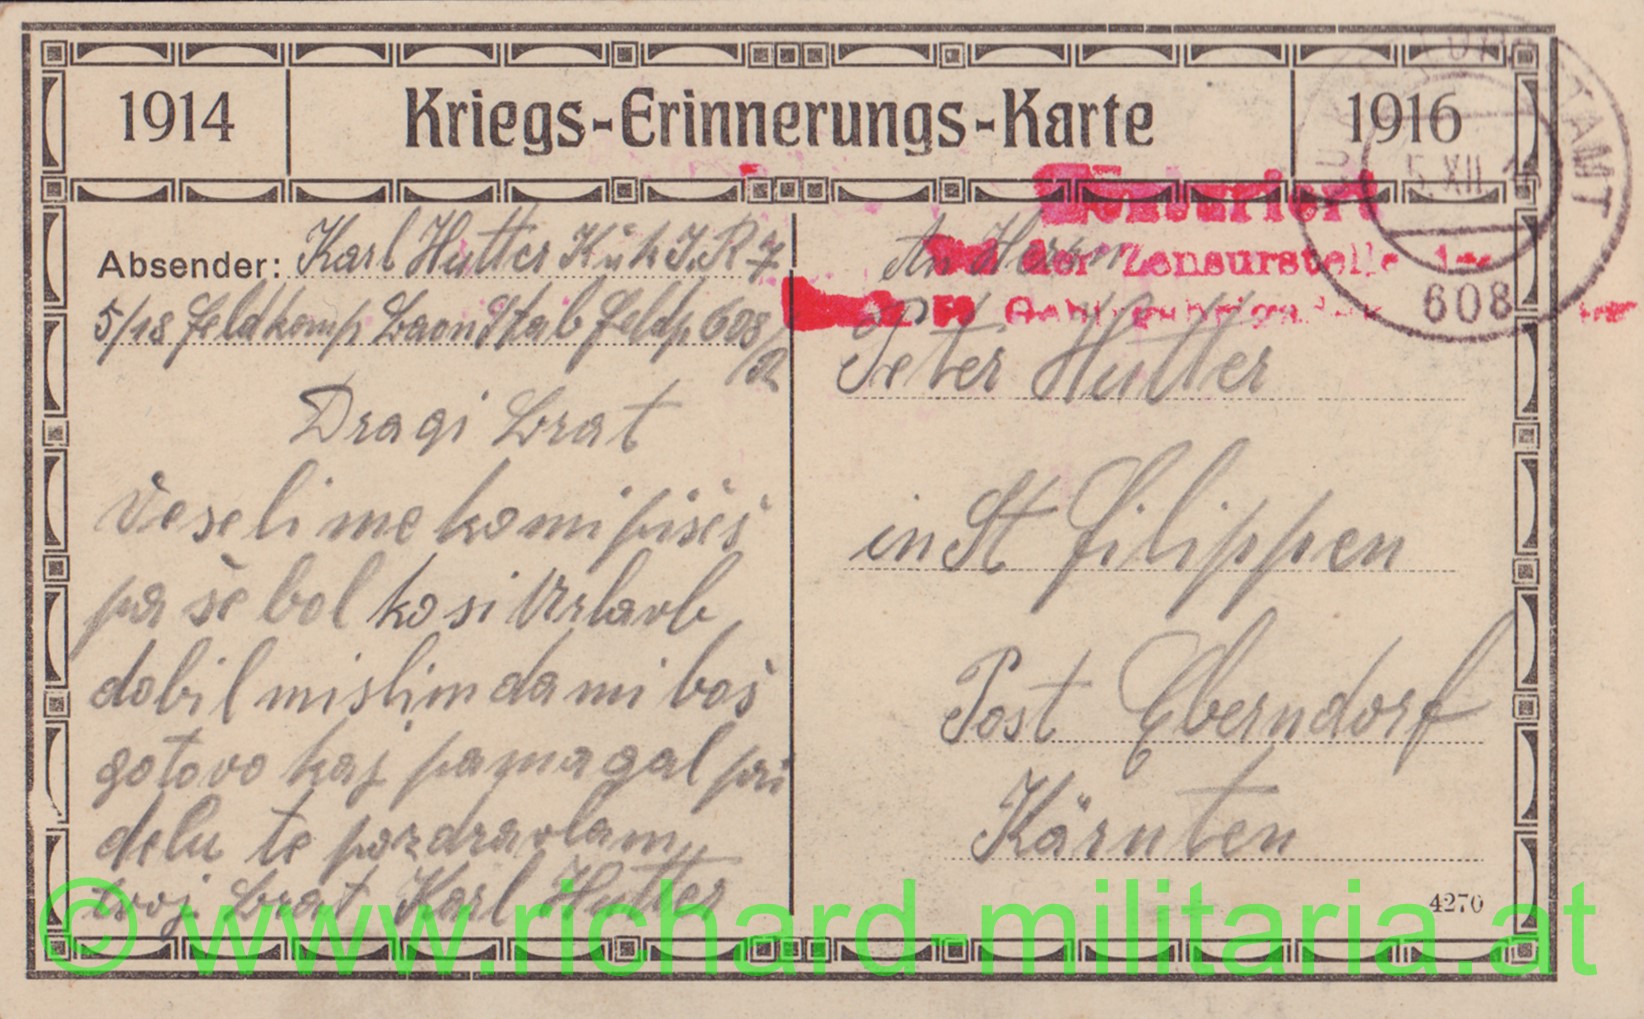 1914
Kriegs-Erinnerungs-Karte
1916
Absender: Karl Hutter K.u.k I.R 7
5/18 Feldkomp Baon Stab Feldp 608
Dragi brat
Veseli me ko mi pišeš
pa še bol ko si Urlavb
dobil mislim da mi boš
gotovo kaj pamagal pri
delu te pozdravlam
tvoj brat Karl Hutter
Zensuriert
der Zensurstelle des
An Herrn
Peter Hutter
in St Filippen
Post Eberndorf
Kärnten
4270
5. XII. 16
608
© www.richard-militaria.at